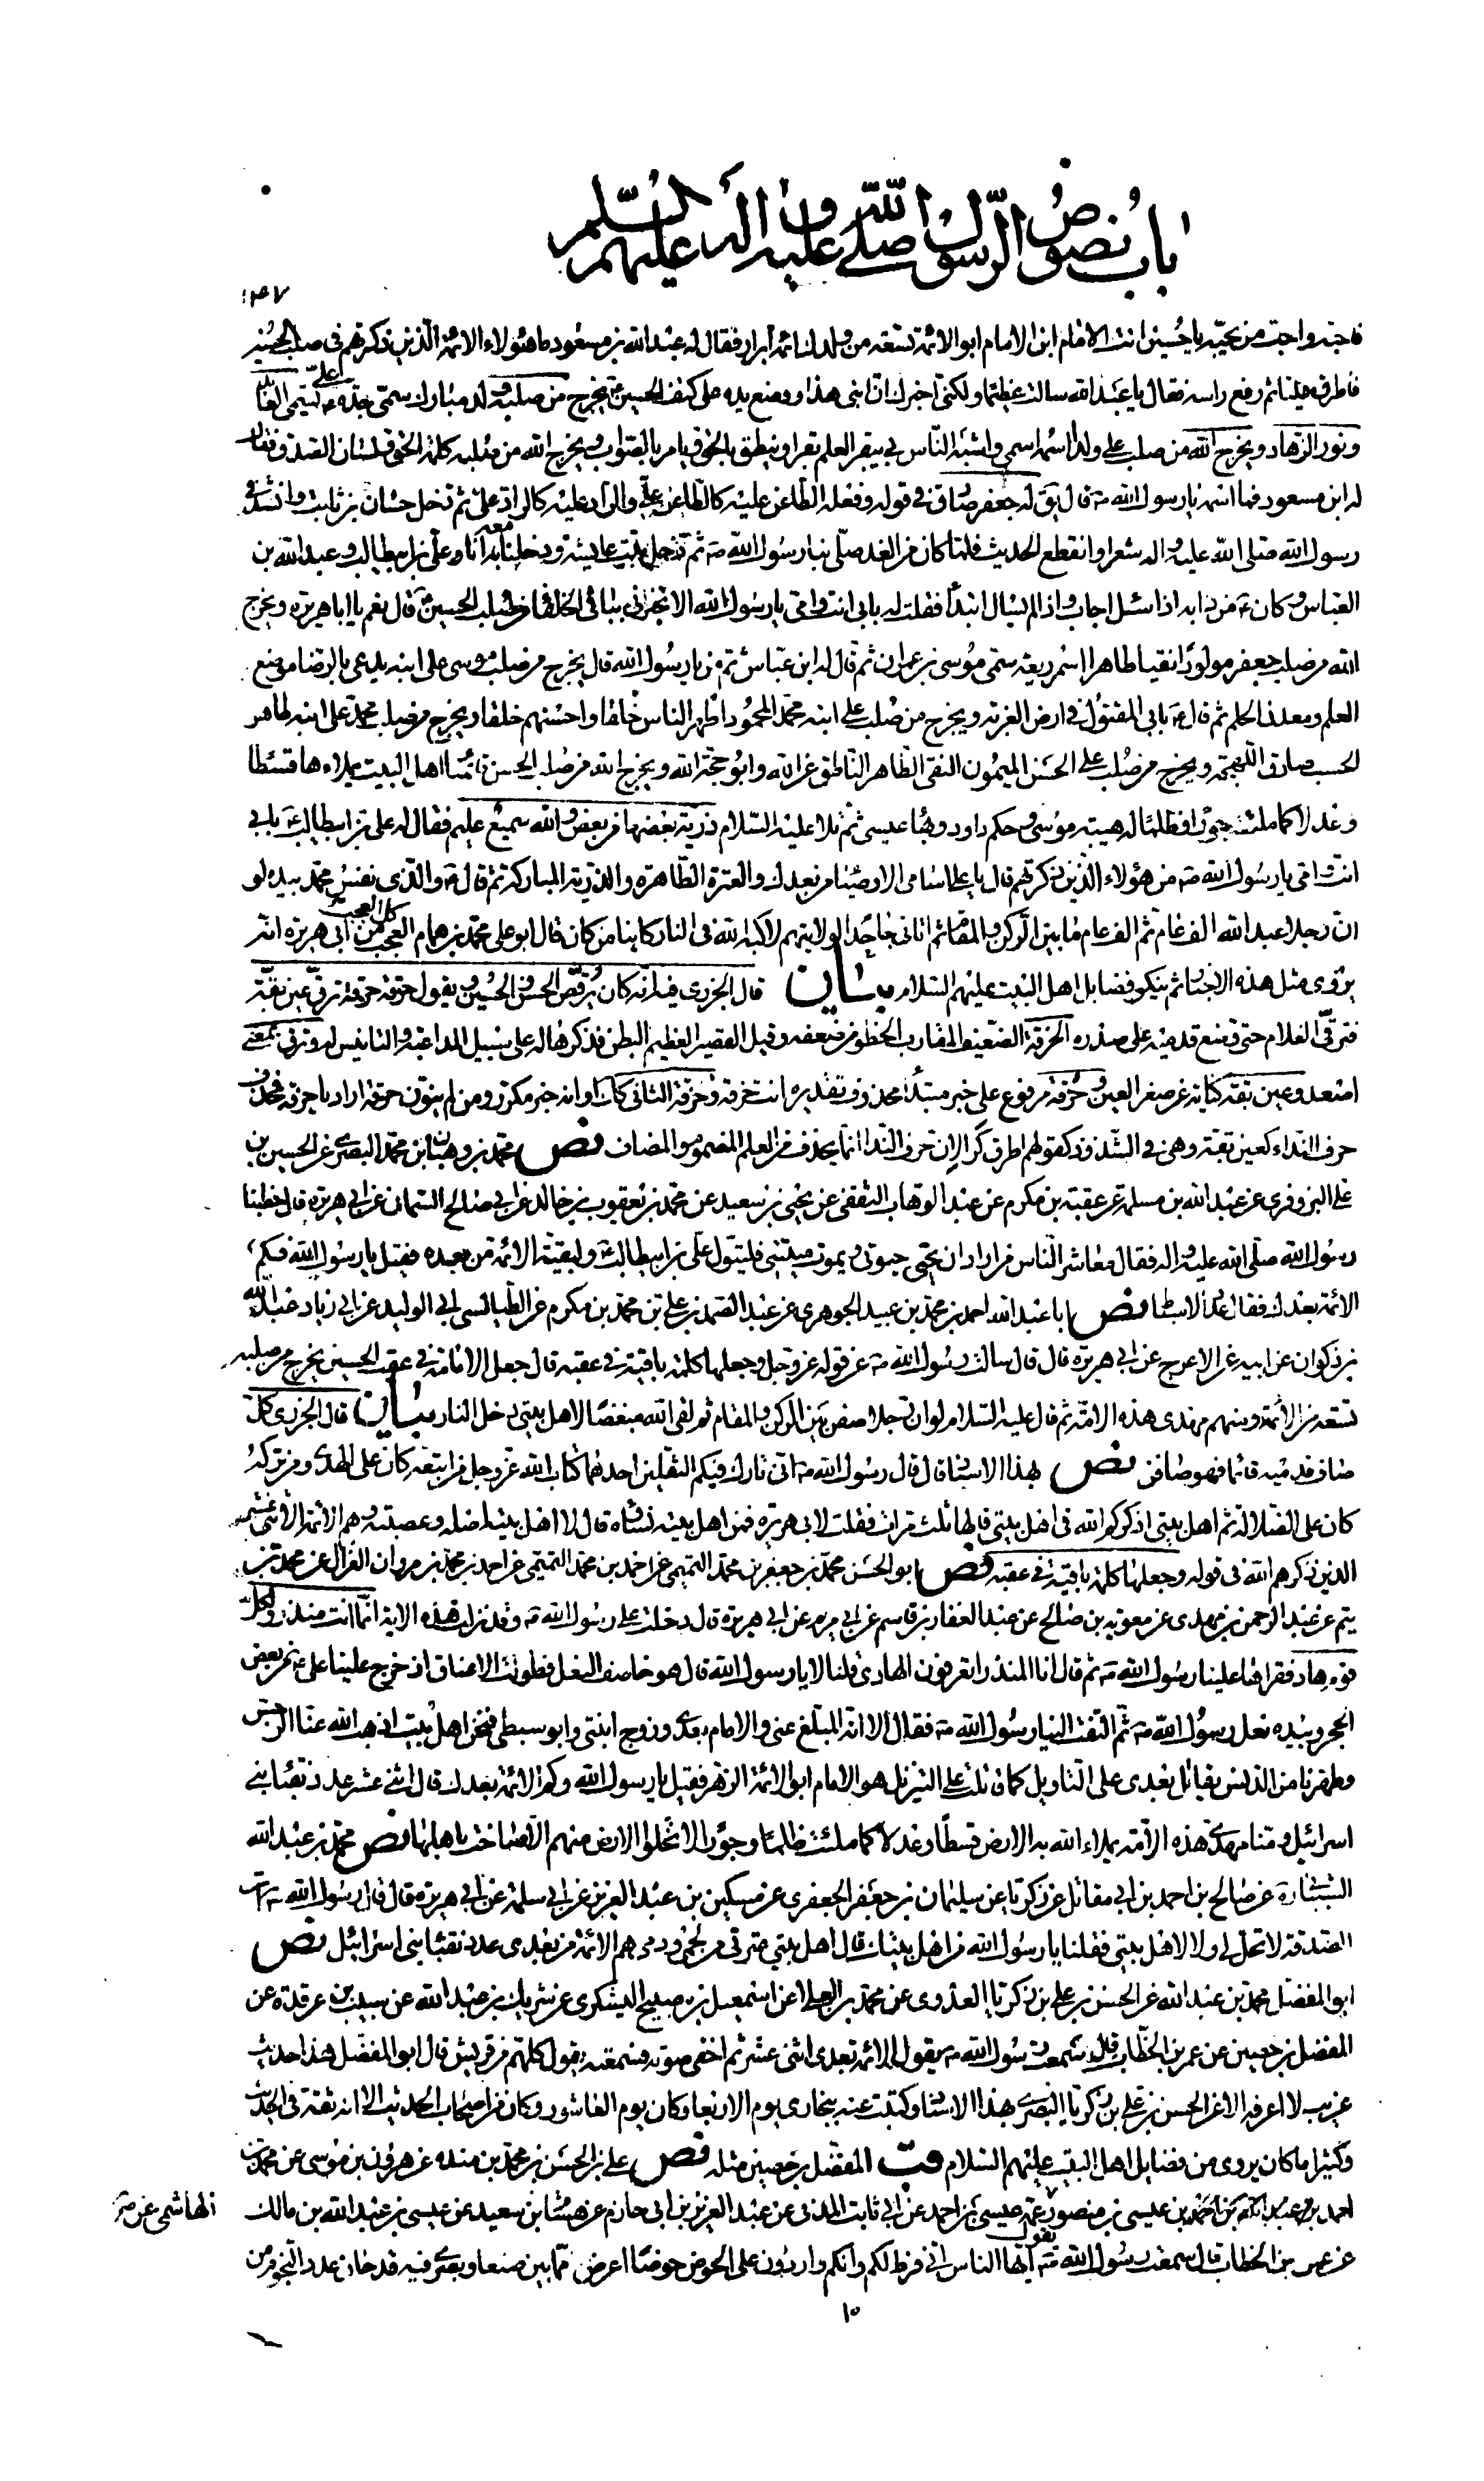 باب نصوص الرسول صلى الله عليه واله عليهم السلم
١٤٧
فاحبه واحب من يحبه يا حسين انت الامام ابن الامام ابو الائمة تسعة من ولدك ائمة ابرار فقال له عبد الله بن مسعود ما هؤلاء الائمة الذين ذكرتهم في صلب الحسين
فاطرق مليا ثم رفع راسه فقال يا عبد الله سالت عظيما ولكني اخبرك ان ابني هذا ووضع يده على كتف الحسين ع يخرج من صلبه ولد مبارك سمي جده علي ع يسمى العابد
ونور الزهاد ويخرج الله من صلب علي ولدا اسمه اسمي واشبه الناس بي يبقر العلم بقرا وينطق بالحق ويامر بالصواب ويخرج الله من صلبه كلمة الحق ولسان الصدق فقال
له ابن مسعود فما اسمه يا رسول الله ص قال يق له جعفر صادق في قوله وفعله الطاعن عليه كالطاعن علي والراد عليه كالراد علي ثم دخل حسان بن ثابت وانشد في
رسول الله صلى الله عليه واله شعرا وانقطع الحديث فلما كان من الغد صلى بنا رسول الله ص ثم دخل بيت عايشة ودخلنا معه انا وعلي بن ابيطالب وعبد الله بن
العباس وكان ع من دابه اذا سئل اجاب واذا لم يسال ابتدأ فقلت له بابي انت وامي يا رسول الله الا تخبرني بباقي الخلفاء من صلب الحسين ع قال نعم يا ابا هريرة ويخرج
الله من صلب جعفر مولودا نقيا طاهرا اسمر ربعة سمي موسى بن عمران ثم قال له ابن عباس ثم من يا رسول الله قال يخرج من صلب موسى علي ابنه يدعى بالرضا موضع
العلم ومعدن الحلم ثم قال ع بابي المقتول في ارض الغربة ويخرج من صلب علي ابنه محمد المحمود اطهر الناس خلقا واحسنهم خلقا ويخرج من صلب محمد علي ابنه طاهر
الحسب صادق اللهجة ويخرج من صلب علي الحسن الميمون النقي الطاهر الناطق عن الله وابو حجة الله ويخرج الله من صلب الحسن قائمنا اهل البيت يملاءها قسطا
وعدلا كما ملئت جورا وظلما له هيبة موسى وحكم داود وبهاء عيسى ثم تلا عليه السلام ذرية بعضها من بعض والله سميع عليم فقال له علي بن ابيطالب ع بابي
انت وامي يا رسول الله ص من هؤلاء الذين ذكرتهم قال يا علي اسامي الاوصياء من بعدك والعترة الطاهرة والذرية المباركة ثم قال ع والذي نفس محمد بيده لو
ان رجلا عبد الله الف عام ثم الف عام ما بين الركن والمقام ثم اتاني جاحدا لولايتهم لاكبه الله في النار كاينا من كان قال ابو علي محمد بن همام العجب كل العجب من ابي هريرة انه
يروي مثل هذه الاخبار ثم ينكر فضايل اهل البيت عليهم السلام بيان قال الجزري فيه انه كان يرقص الحسن والحسين ويقول حزقة حزقة ترق عين بقة
فترقى الغلام حتى وضع قدميه على صدره الحزقة الضعيف المقارب الخطو من ضعفه وقيل القصير العظيم البطن فذكرها له على سبيل المداعبة والتانيس له وترق بمعنى
اصعد وعين بقة كناية عن صغر العين وحزقة مرفوع على خبر مبتدأ محذوف تقديره انت حزقة وحزقة الثاني كذلك او انه خبر مكرر ومن لم ينون حزقة اراد يا حزقة فحذف
حرف النداء كعين بقة وهي في الشذوذ كقولهم اطرق كرا لان حرف النداء انما يحذف من العلم المضموم والمضاف نص محمد بن وهبان بن محمد البصري عن الحسين بن
علي البزوفري عن عبد الله بن مسلمة عن عقبة بن مكرم عن عبد الوهاب الثقفي عن يحيى بن سعيد عن محمد بن يعقوب بن خالد عن ابي صالح السمان عن ابي هريرة قال خطبنا
رسول الله صلى الله عليه واله فقال معاشر الناس من اراد ان يحيى حيوتي ويموت ميتتي فليتول علي بن ابيطالب ع وليقتد بالائمة من بعده فقيل يا رسول الله فكم
الائمة بعدك فقال عدد الاسباط نص ابا عبد الله احمد بن محمد بن عبيد الجوهري عن عبد الصمد بن علي بن محمد بن مكرم عن الطيالسي ابي الوليد عن ابي زياد عبد الله
بن ذكوان عن ابيه عن الاعرج عن ابي هريرة قال قال سالت رسول الله ص عن قوله عز وجل وجعلها كلمة باقية في عقبه قال جعل الامامة في عقب الحسين يخرج من صلبه
تسعة من الائمة ومنهم مهدي هذه الامة ثم قال عليه السلام لو ان رجلا صفن بين الركن والمقام ثم لقي الله مبغضا لاهل بيتي دخل النار بيان قال الجزري كل
صاف قدميه قائما فهو صافن نص بهذا الاسناد قال قال رسول الله ص اني تارك فيكم الثقلين احدهما كتاب الله عز وجل من اتبعه كان على الهدى ومن تركه
كان على الضلالة ثم اهل بيتي اذكركم الله في اهل بيتي قالها ثلث مرات فقلت لابي هريرة فمن اهل بيته نساؤه قال لا اهل بيته اصله وعصبته وهم الائمة الاثني عشر
الذين ذكرهم الله في قوله وجعلها كلمة باقية في عقبه نص ابو الحسن محمد بن جعفر بن محمد التميمي عن احمد بن محمد التميمي عن احمد بن محمد بن مروان الغزال عن محمد بن
يتم عن عبد الرحمن بن مهدي عن معوية بن صالح عن عبد الغفار بن قاسم عن ابي مريم عن ابي هريرة قال دخلت على رسول الله ص وقد نزلت هذه الاية انما انت منذر ولكل
قوم هاد فقراها علينا رسول الله ص ثم قال انا المنذر اتعرفون الهادي قلنا لا يا رسول الله قال هو خاصف النعل فطولت الاعناق اذ خرج علينا علي ع من بعض
الحجر وبيده نعل رسول الله ص ثم التفت الينا رسول الله ص فقال الا انه المبلغ عني والامام بعدي وزوج ابنتي وابو سبطي فنحن اهل بيت اذهب الله عنا الرجس
وطهرنا من الدنس يقاتل بعدي على التاويل كما قاتلت على التنزيل هو الامام ابو الائمة الزهر فقيل يا رسول الله وكم الائمة بعدك قال اثني عشر عدد نقباء بني
اسرائيل ومنا مهدي هذه الامة يملاء الله به الارض قسطا وعدلا كما ملئت ظلما وجورا لا تخلوا الارض منهم الا ساخت باهلها نص محمد بن عبد الله
الشيباني عن صالح بن احمد بن ابي مقاتل عن زكريا عن سليمان بن جعفر الجعفري عن مسكين بن عبد العزيز عن ابي سلمة عن ابي هريرة قال قال رسول الله ص
الصدقة لا تحل لي ولا لاهل بيتي فقلنا يا رسول الله من اهل بيتك قال اهل بيتي عترتي من لحمي ودمي هم الائمة من بعدي عدد نقباء بني اسرائيل نص
ابو المفضل محمد بن عبد الله عن الحسن بن علي بن زكريا العدوي عن محمد بن العلا عن اسمعيل بن صبيح اليشكري عن شريك بن عبد الله عن شبيب بن غرقدة عن
المفضل بن حصين عن عمر بن الخطاب قال سمعت رسول الله ص يقول الائمة بعدي اثني عشر ثم اخفى صوته فسمعته يقول كلهم من قريش قال ابو المفضل هذا حديث
غريب لا اعرفه الا عن الحسن بن علي بن زكريا البصري بهذا الاسناد وكتبت عنه ببخارى يوم الاربعا وكان يوم العاشور وكان من اصحاب الحديث الا انه ثقة في الحديث
وكثيرا ما كان يروي من فضايل اهل البيت عليهم السلام قب المفضل بن حصين مثله نص علي بن الحسن بن محمد بن منده عن هرون بن موسى عن محمد بن
احمد بن عبيد الله بن احمد بن عيسى بن منصور الهاشمي عن عمه عيسى بن احمد عن ابي ثابت المدني عن عبد العزيز بن ابي حازم عن هشام بن سعيد عن عيسى بن عبد الله بن مالك
عن عمر بن الخطاب قال سمعت رسول الله ص يقول ايها الناس اني فرط لكم وانكم واردون علي الحوض حوضا اعرض مما بين صنعا وبصرى فيه قدحان عدد النجوم من
١٠